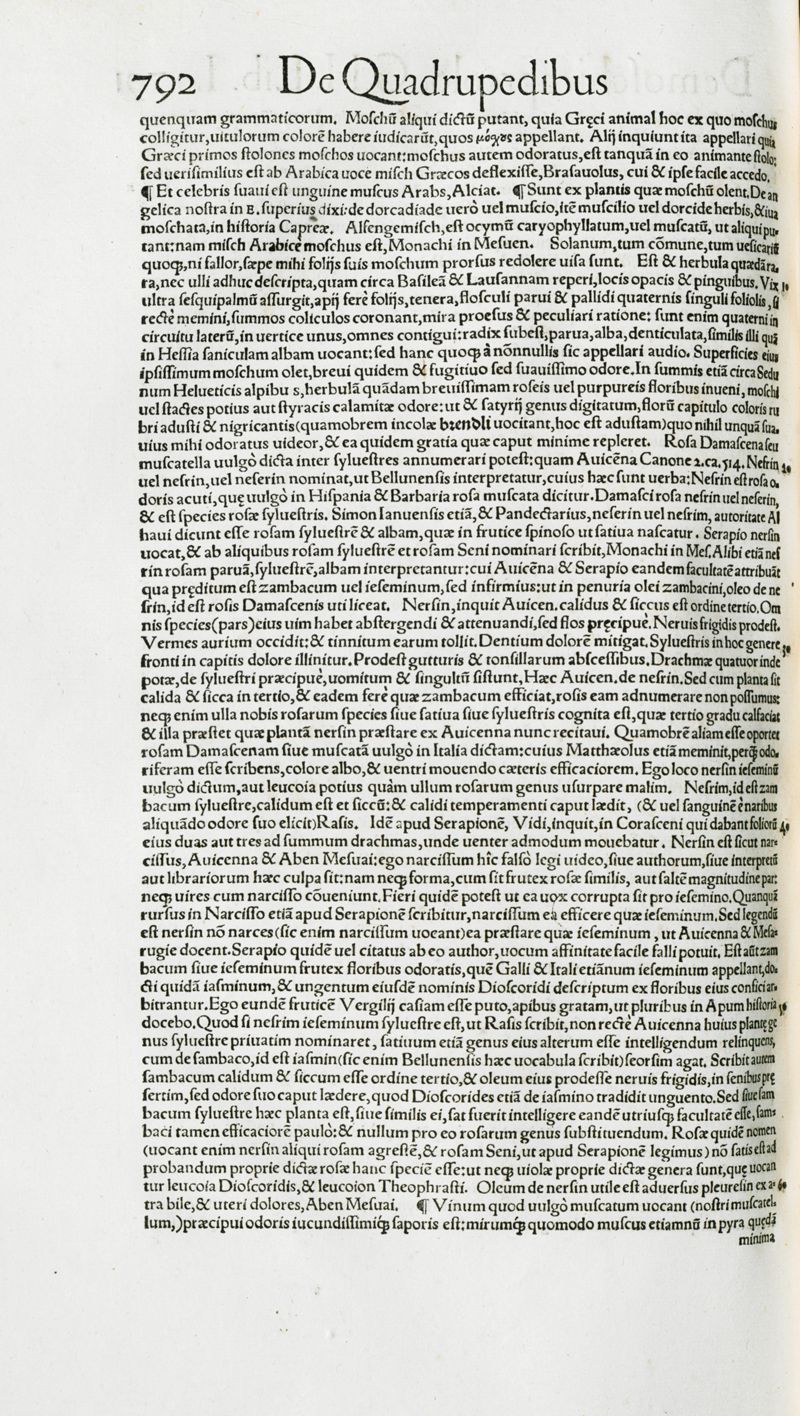 792 De Quadrupedibus
quenquam grammaticorum. Moſchū aliqui dictū putant, quia Gręci animal hoc ex quo moſchus
colligitur, uitulorum colorē habere iudicarūt, quos μόχος appellant. Alij inquiunt ita appellari quia
Græci primos ſtolones moſchos uocant: moſchus autem odoratus, eſt tanquā in eo animante ſtolo:
ſed ueriſimilius eſt ab Arabica uoce miſch Græcos deflexiſſe, Braſauolus, cui & ipſe facile accedo.
¶ Et celebris ſuaui eſt unguine muſcus Arabs, Alciat. ¶ Sunt ex plantis quæ moſchū olent. De an
gelica noſtra in E. ſuperius dixi: de dorcadiade uerò uel muſcio, itē muſcilio uel dorcide herbis, & iua
moſchata, in hiſtoria Capreæ. Alſengemiſch, eſt ocymū caryophyllatum, uel muſcatū, ut aliqui pu-
tant: nam miſch Arabicè moſchus eſt, Monachi in Meſuen. Solanum, tum cōmune, tum ueſicariū
quoq;, ni fallor, ſæpe mihi folijs ſuis moſchum prorſus redolere uiſa ſunt. Eſt & herbula quædā ra,
ra, nec ulli adhuc deſcripta, quam circa Baſileā & Lauſannam reperi, locis opacis & pinguibus. Vix 10
ultra ſeſquipalmū aſſurgit, apij ferè folijs, tenera, floſculi parui & pallidi quaternis ſinguli foliolis, ſi
rectè memini, ſummos coliculos coronant, mira proefus & peculiari ratione: ſunt enim quaterni in
circuitu laterū, in uertice unus, omnes contigui: radix ſubeſt, parua, alba, denticulata, ſimilis illi quā
in Heſſia ſaniculam albam uocant: ſed hanc quoq; à nōnnullis ſic appellari audio. Superficies eius
ipſiſſimum moſchum olet, breui quidem & fugitiuo ſed ſuauiſſimo odore. In ſummis etiā circa Sedu
num Helueticis alpibu s, herbulā quādam breuiſſimam roſeis uel purpureis floribus inueni, moſchi
uel ſtactes potius aut ſtyracis calamitæ odore: ut & ſatyrij genus digitatum, florū capitulo coloris ru
bri aduſti & nigricantis (quamobrem incolæ brendli uocitant, hoc eſt aduſtam) quo nihil unquā ſua,
uius mihi odoratus uideor, & ea quidem gratia quæ caput minime repleret. Roſa Damaſcena ſeu
muſcatella uulgò dicta inter ſylueſtres annumerari poteſt: quam Auicēna Canone 2. ca. 514. Neſrin 20
uel neſrin, uel neſerin nominat, ut Bellunenſis interpretatur, cuius hæc ſunt uerba: Neſrin eſt roſa o,
doris acuti, quę uulgò in Hiſpania & Barbaria roſa muſcata dicitur. Damaſci roſa neſrin uel neſerin,
& eſt ſpecies roſæ ſylueſtris. Simon Ianuenſis etiā, & Pandectarius, neſerin uel neſrim, autoritate Al
haui dicunt eſſe roſam ſylueſtrē & albam, quæ in frutice ſpinoſo ut ſatiua naſcatur. Serapio nerſin
uocat, & ab aliquibus roſam ſylueſtrē et roſam Seni nominari ſcribit, Monachi in Meſ. Alibi etiā neſ
rin roſam paruā, ſylueſtrē, albam interpretantur: cui Auicēna & Serapio eandem facultatē attribuāt
qua pręditum eſt zambacum uel ieſeminum, ſed infirmius: ut in penuria olei zambacini, oleo de ne
ſrin, id eſt roſis Damaſcenis uti liceat. Nerſin, inquit Auicen. calidus & ſiccus eſt ordine tertio. Om
nis ſpecies (pars) eius uim habet abſtergendi & attenuandi, ſed flos pręcipuè. Neruis frigidis prodeſt.
Vermes aurium occidit: & tinnitum earum tollit. Dentium dolorē mitigat. Sylueſtris in hoc genere 30
fronti in capitis dolore illinitur. Prodeſt gutturis & tonſillarum abſceſſibus. Drachmæ quatuor inde
potæ, de ſylueſtri præcipuè, uomitum & ſingultū ſiſtunt, Hæc Auicen. de neſrin. Sed cum planta ſit
calida & ſicca in tertio, & eadem ferè quæ zambacum efficiat, roſis eam adnumerare non poſſumus:
neq; enim ulla nobis roſarum ſpecies ſiue ſatiua ſiue ſylueſtris cognita eſt, quæ tertio gradu calfaciat
& illa præſtet quæ plantā nerſin præſtare ex Auicenna nunc recitaui. Quamobrē aliam eſſe oportet
roſam Damaſcenam ſiue muſcatā uulgò in Italia dictam: cuius Matthæolus etiā meminit, perq; odo,
riferam eſſe ſcribens, colore albo, & uentri mouendo cæteris efficaciorem. Ego loco nerſin ieſeminū
uulgò dictum, aut leucoia potius quàm ullum roſarum genus uſurpare malim. Neſrim, id eſt zam
bacum ſylueſtre, calidum eſt et ſiccū: & calidi temperamenti caput lædit, (& uel ſanguinē è naribus
aliquādo odore ſuo elicit) Raſis. Idē apud Serapionē, Vidi, inquit, in Coraſceni qui dabant foliorū 40
eius duas aut tres ad ſummum drachmas, unde uenter admodum mouebatur. Nerſin eſt ſicut nar-
ciſſus, Auicenna & Aben Meſuai: ego narciſſum hîc falſò legi uideo, ſiue authorum, ſiue interpretū
aut librariorum hæc culpa ſit: nam neq; forma, cum ſit frutex roſæ ſimilis, aut ſaltē magnitudine par:
neq; uires cum narciſſo cōueniunt. Fieri quidē poteſt ut ea uox corrupta ſit pro ieſemino. Quanquā
rurſus in Narciſſo etiā apud Serapionē ſcribitur, narciſſum ea efficere quæ ieſeminum. Sed legendū
eſt nerſin nō narces (ſic enim narciſſum uocant) ea præſtare quæ ieſeminum, ut Auicenna & Meſa-
rugie docent. Serapio quidē uel citatus ab eo author, uocum affinitate facile falli potuit. Eſt aūt zam
bacum ſiue ieſeminum frutex floribus odoratis, quē Galli & Itali etiānum ieſeminum appellant, do,
cti quidā iaſminum, & ungentum eiuſdē nominis Dioſcoridi deſcriptum ex floribus eius confici ar-
bitrantur. Ego eundē fruticē Vergilij caſiam eſſe puto, apibus gratam, ut pluribus in Apum hiſtoria 50
docebo. Quod ſi neſrim ieſeminum ſylueſtre eſt, ut Raſis ſcribit, non rectè Auicenna huius plantę ge
nus ſylueſtre priuatim nominaret, ſatiuum etiā genus eius alterum eſſe intelligendum relinquens,
cum de ſambaco, id eſt iaſmin (ſic enim Bellunenſis hæc uocabula ſcribit) ſeorſim agat. Scribit autem
ſambacum calidum & ſiccum eſſe ordine tertio, & oleum eius prodeſſe neruis frigidis, in ſenibus prę
ſertim, ſed odore ſuo caput lædere, quod Dioſcorides etiā de iaſmino tradidit unguento. Sed ſiue ſam
bacum ſylueſtre hæc planta eſt, ſiue ſimilis ei, ſat fuerit intelligere eandē utriuſq; facultatē eſſe, ſam-
baci tamen efficaciorē paulò: & nullum pro eo roſarum genus ſubſtituendum. Roſæ quidē nomen
(uocant enim nerſin aliqui roſam agreſtē, & roſam Seni, ut apud Serapionē legimus) nō ſatis eſt ad
probandum proprie dictæ roſæ hanc ſpeciē eſſe: ut neq; uiolæ proprie dictæ genera ſunt, quę uocan
tur leucoia Dioſcoridis, & leucoion Theophraſti. Oleum de nerſin utile eſt aduerſus pleureſin ex a- 60
tra bile, & uteri dolores, Aben Meſuai. ¶ Vinum quod uulgò muſcatum uocant (noſtri muſcatel-
lum,) præcipui odoris iucundiſſimiq; ſaporis eſt: mirumq; quomodo muſcus etiamnū in pyra quędā
minima